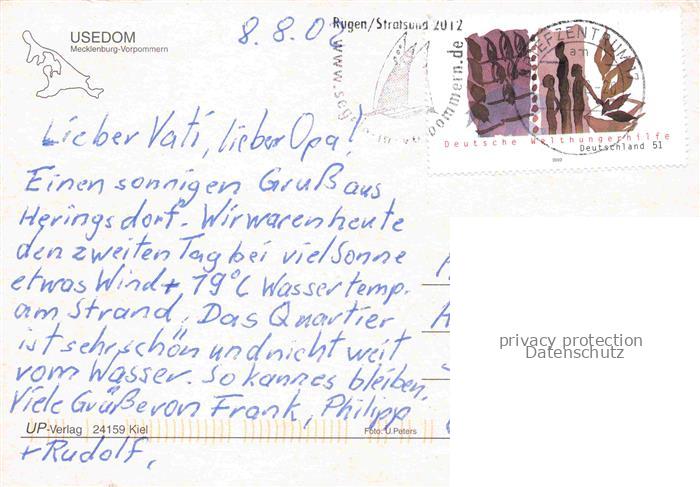 USEDOM
Mecklenburg-Vorpommern
8.8.02
Rügen/Stralsund 2012
www.seg
pommern.de
BRIEFZENTRUM
am
Deutsche Welthungerhilfe
Deutschland 51
2002
Lieber Vati, lieber Opa!
Einen sonnigen Gruß aus
Heringsdorf. Wir waren heute
den zweiten Tag bei viel Sonne
etwas Wind + 19°C Wassertemp.
am Strand. Das Quartier
ist sehr schön und nicht weit
vom Wasser. So kann es bleiben.
Viele Grüße von Frank, Philipp
+ Rudolf.
UP-Verlag 24159 Kiel
Foto: U.Peters
privacy protection
Datenschutz